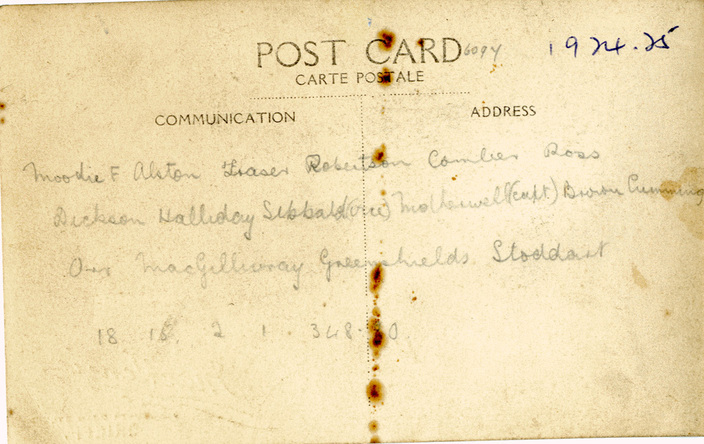 POST CARD 1924.25
CARTE POSTALE
COMMUNICATION ADDRESS
Moodie F Alston Fraser Robertson Comber Ross
Dickson Halliday Sibbald (vice) Motherwell (capt) Brown Cumming
Orr MacGillivray Greenshields Stoddart
18 15 2 1 348.